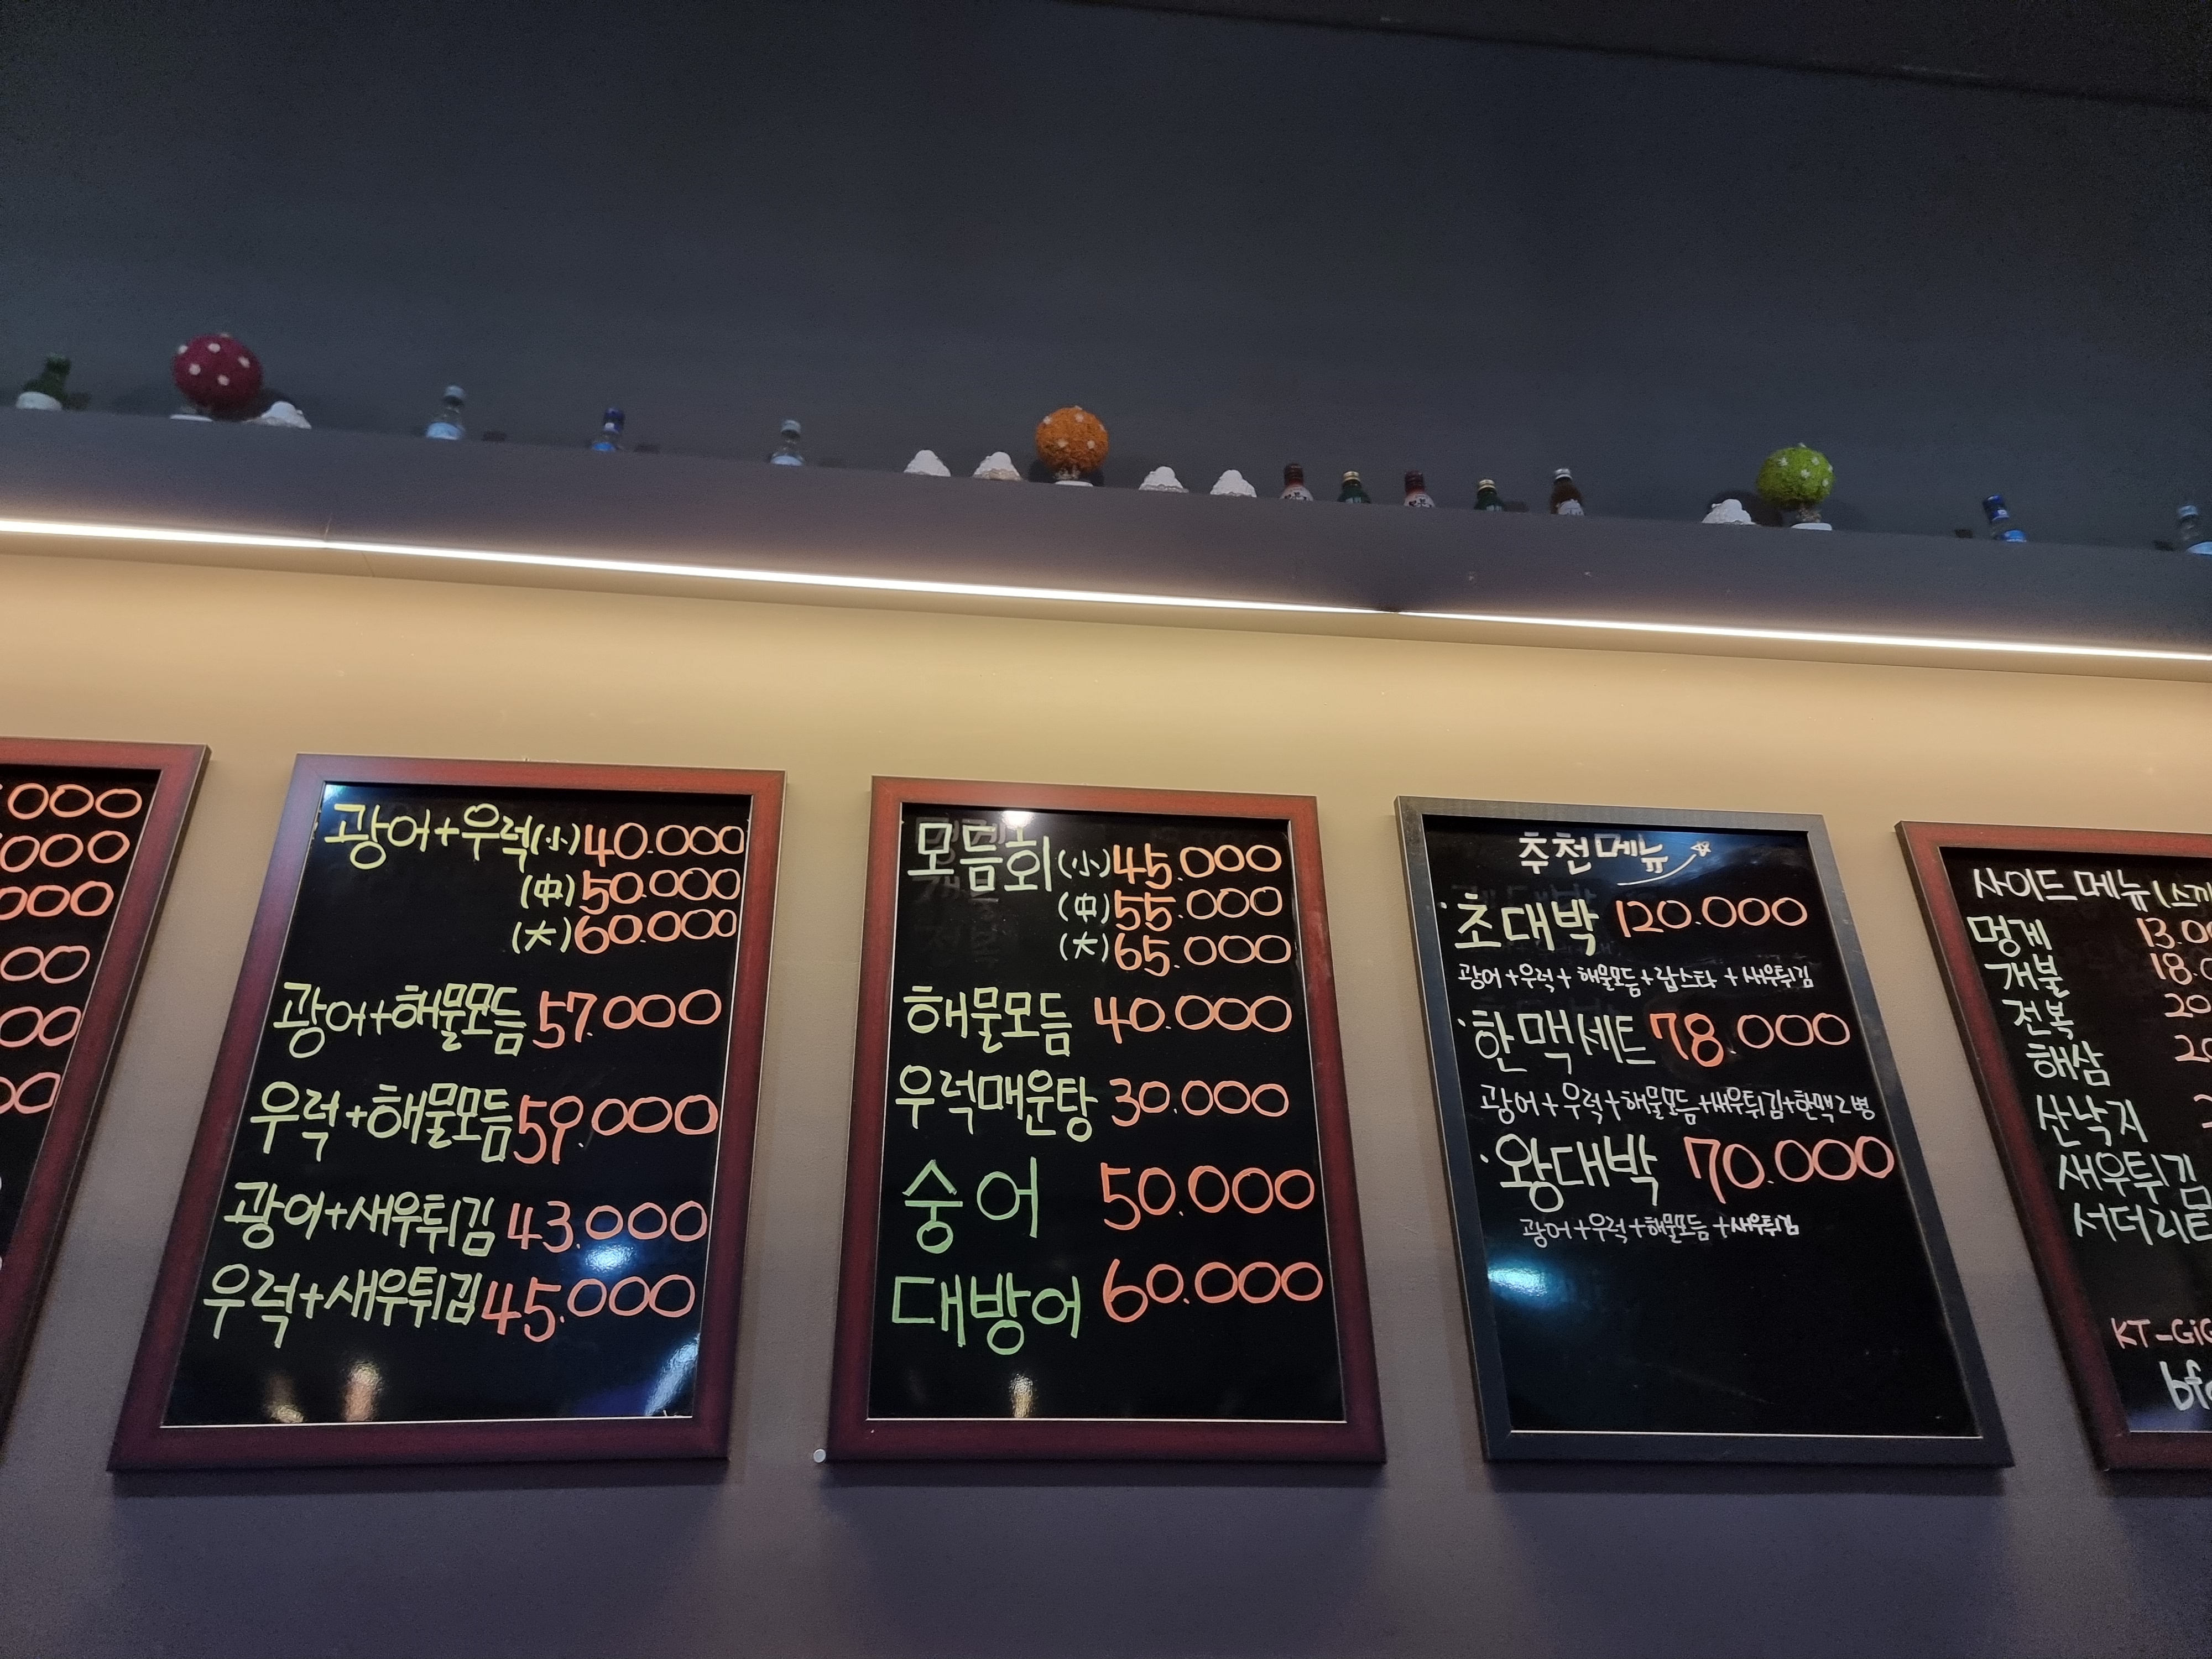 000
000
000
00
00
00
광어+우럭(小)40.000
(中)50.000
(大)60.000
광어+해물모듬 57.000
우럭+해물모듬 59.000
광어+새우튀김 43.000
우럭+새우튀김 45.000
모듬회(小)45.000
(中)55.000
(大)65.000
해물모듬 40.000
우럭매운탕 30.000
숭어 50.000
대방어 60.000
추천메뉴
·초대박 120.000
광어+우럭+해물모듬+랍스타+새우튀김
·한맥세트 78.000
광어+우럭+해물모듬+새우튀김+한맥2병
·왕대박 70.000
광어+우럭+해물모듬+새우튀김
사이드메뉴(스끼
멍게 13.0
개불 18.0
전복 20
해삼 20
산낙지
새우튀김
서더리
KT-GiG